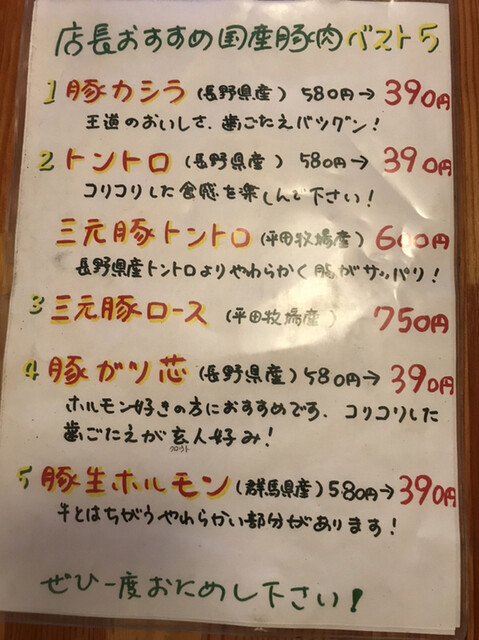 店長おすすめ国産豚肉ベスト5
1 豚カシラ (長野県産) 580円→390円
王道のおいしさ、歯ごたえバツグン!
2 トントロ (長野県産) 580円→390円
コリコリした食感を楽しんで下さい!
三元豚トントロ (平田牧場産) 600円
長野県産トントロよりやわらかく脂がサッパリ!
3 三元豚ロース (平田牧場産) 750円
4 豚ガツ芯 (長野県産) 580円→390円
ホルモン好きの方におすすめです、コリコリした
歯ごたえが玄人好み!
クロウト
5 豚生ホルモン (群馬県産) 580円→390円
牛とはちがうやわらかい部分があります!
ぜひ一度おためし下さい!